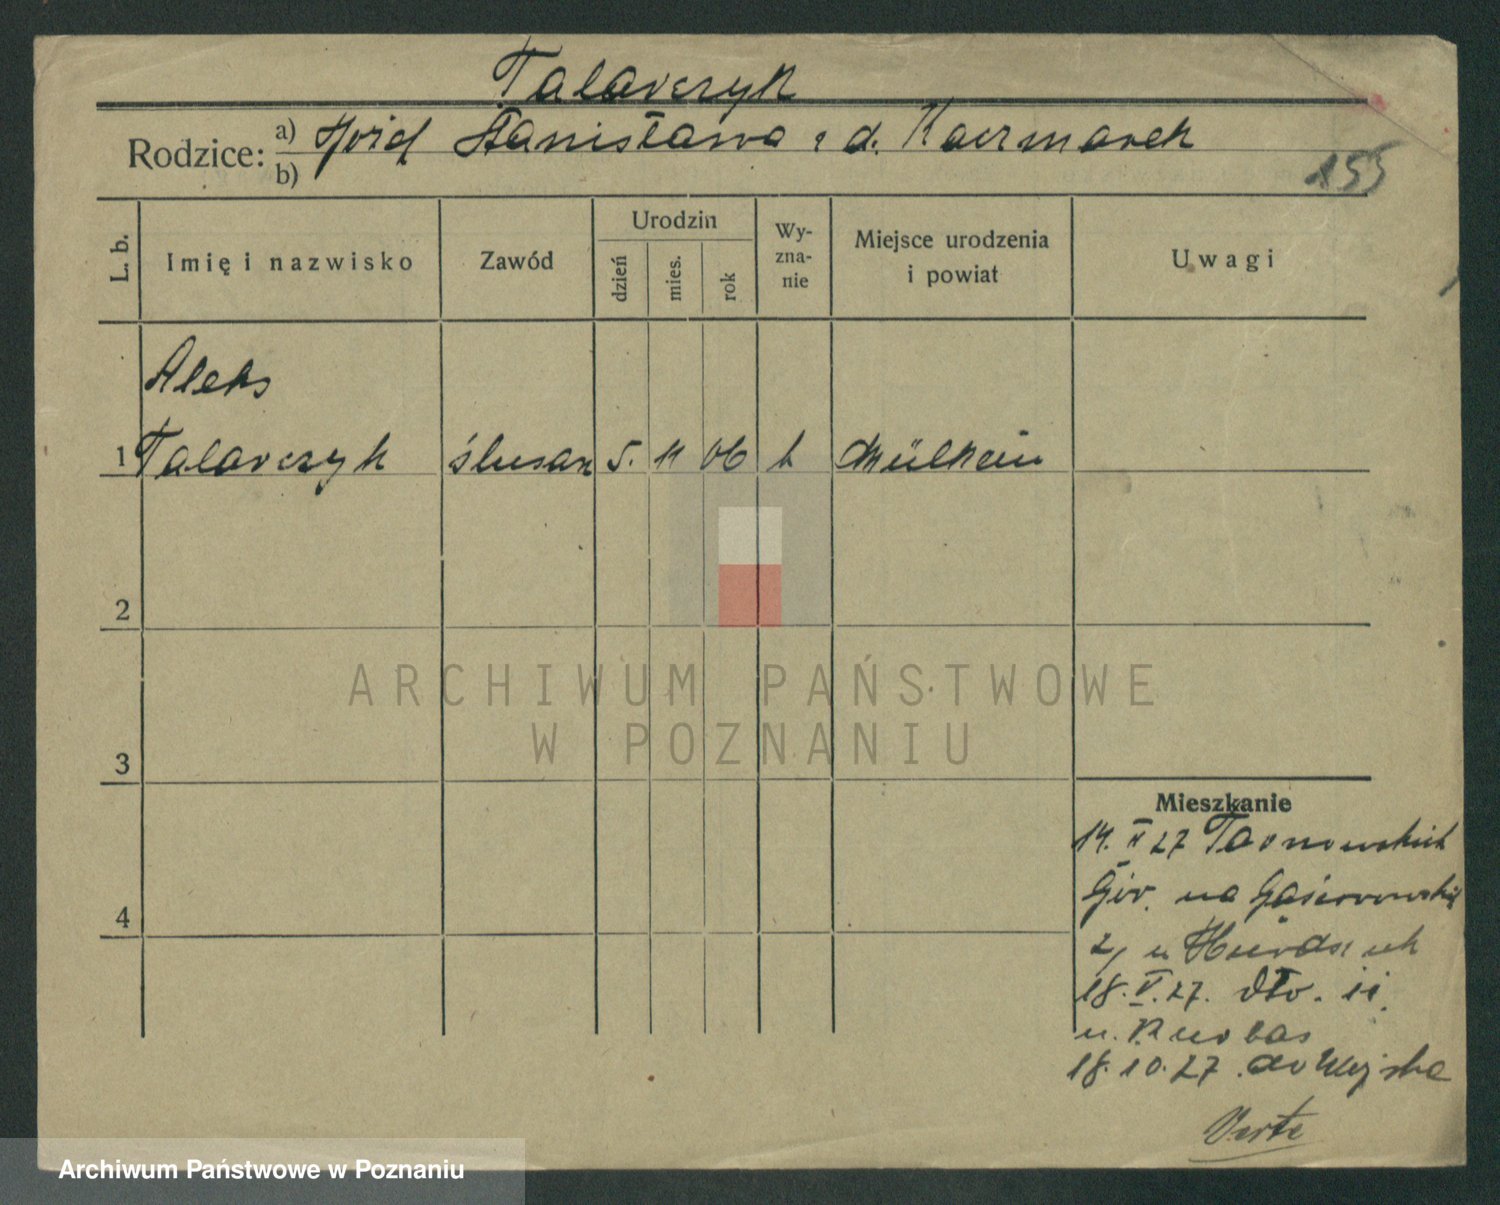 Talarczyk
Rodzice: a) Józef Stanisława z d. Kaczmarek
b)
155
L. b.
Imię i nazwisko
Zawód
Urodzin
dzień
mies.
rok
Wy-
zna-
nie
Miejsce urodzenia
i powiat
Uwagi
Aleks
1 Talarczyk ślusarz 5. 11 06 k Mülheim
2
3
4
ARCHIWUM PAŃSTWOWE
W POZNANIU
Mieszkanie
14. 27
Gór. na Gąsiorowskich
2, u
18. V. 27. dto. 11.
u. Kurbas
18.10.27. do Wojska
Verte
Archiwum Państwowe w Poznaniu